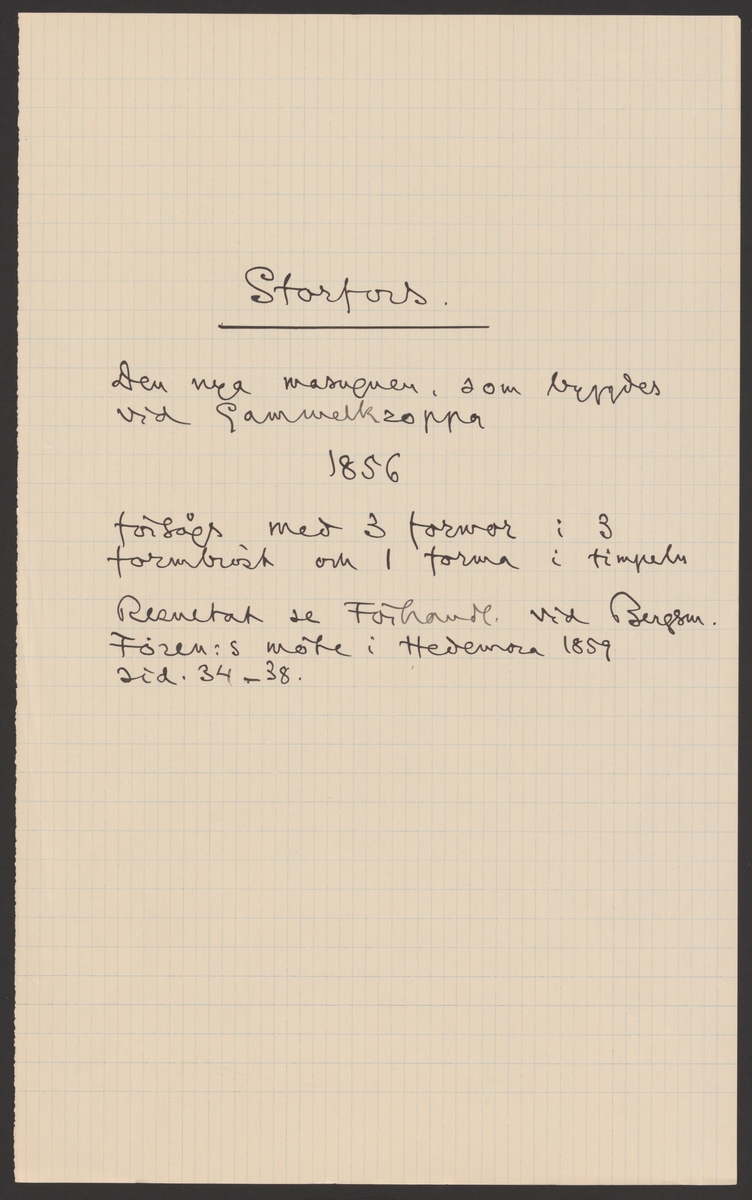 Storfors.
Den nya masugnen, som byggdes
vid Gammelkroppa
1856
försågs med 3 formor i 3
formbröst och 1 forma i timpeln
Resultat se Förhandl. vid Bergsm.
Fören:s möte i Hedemora 1859
sid. 34-38.